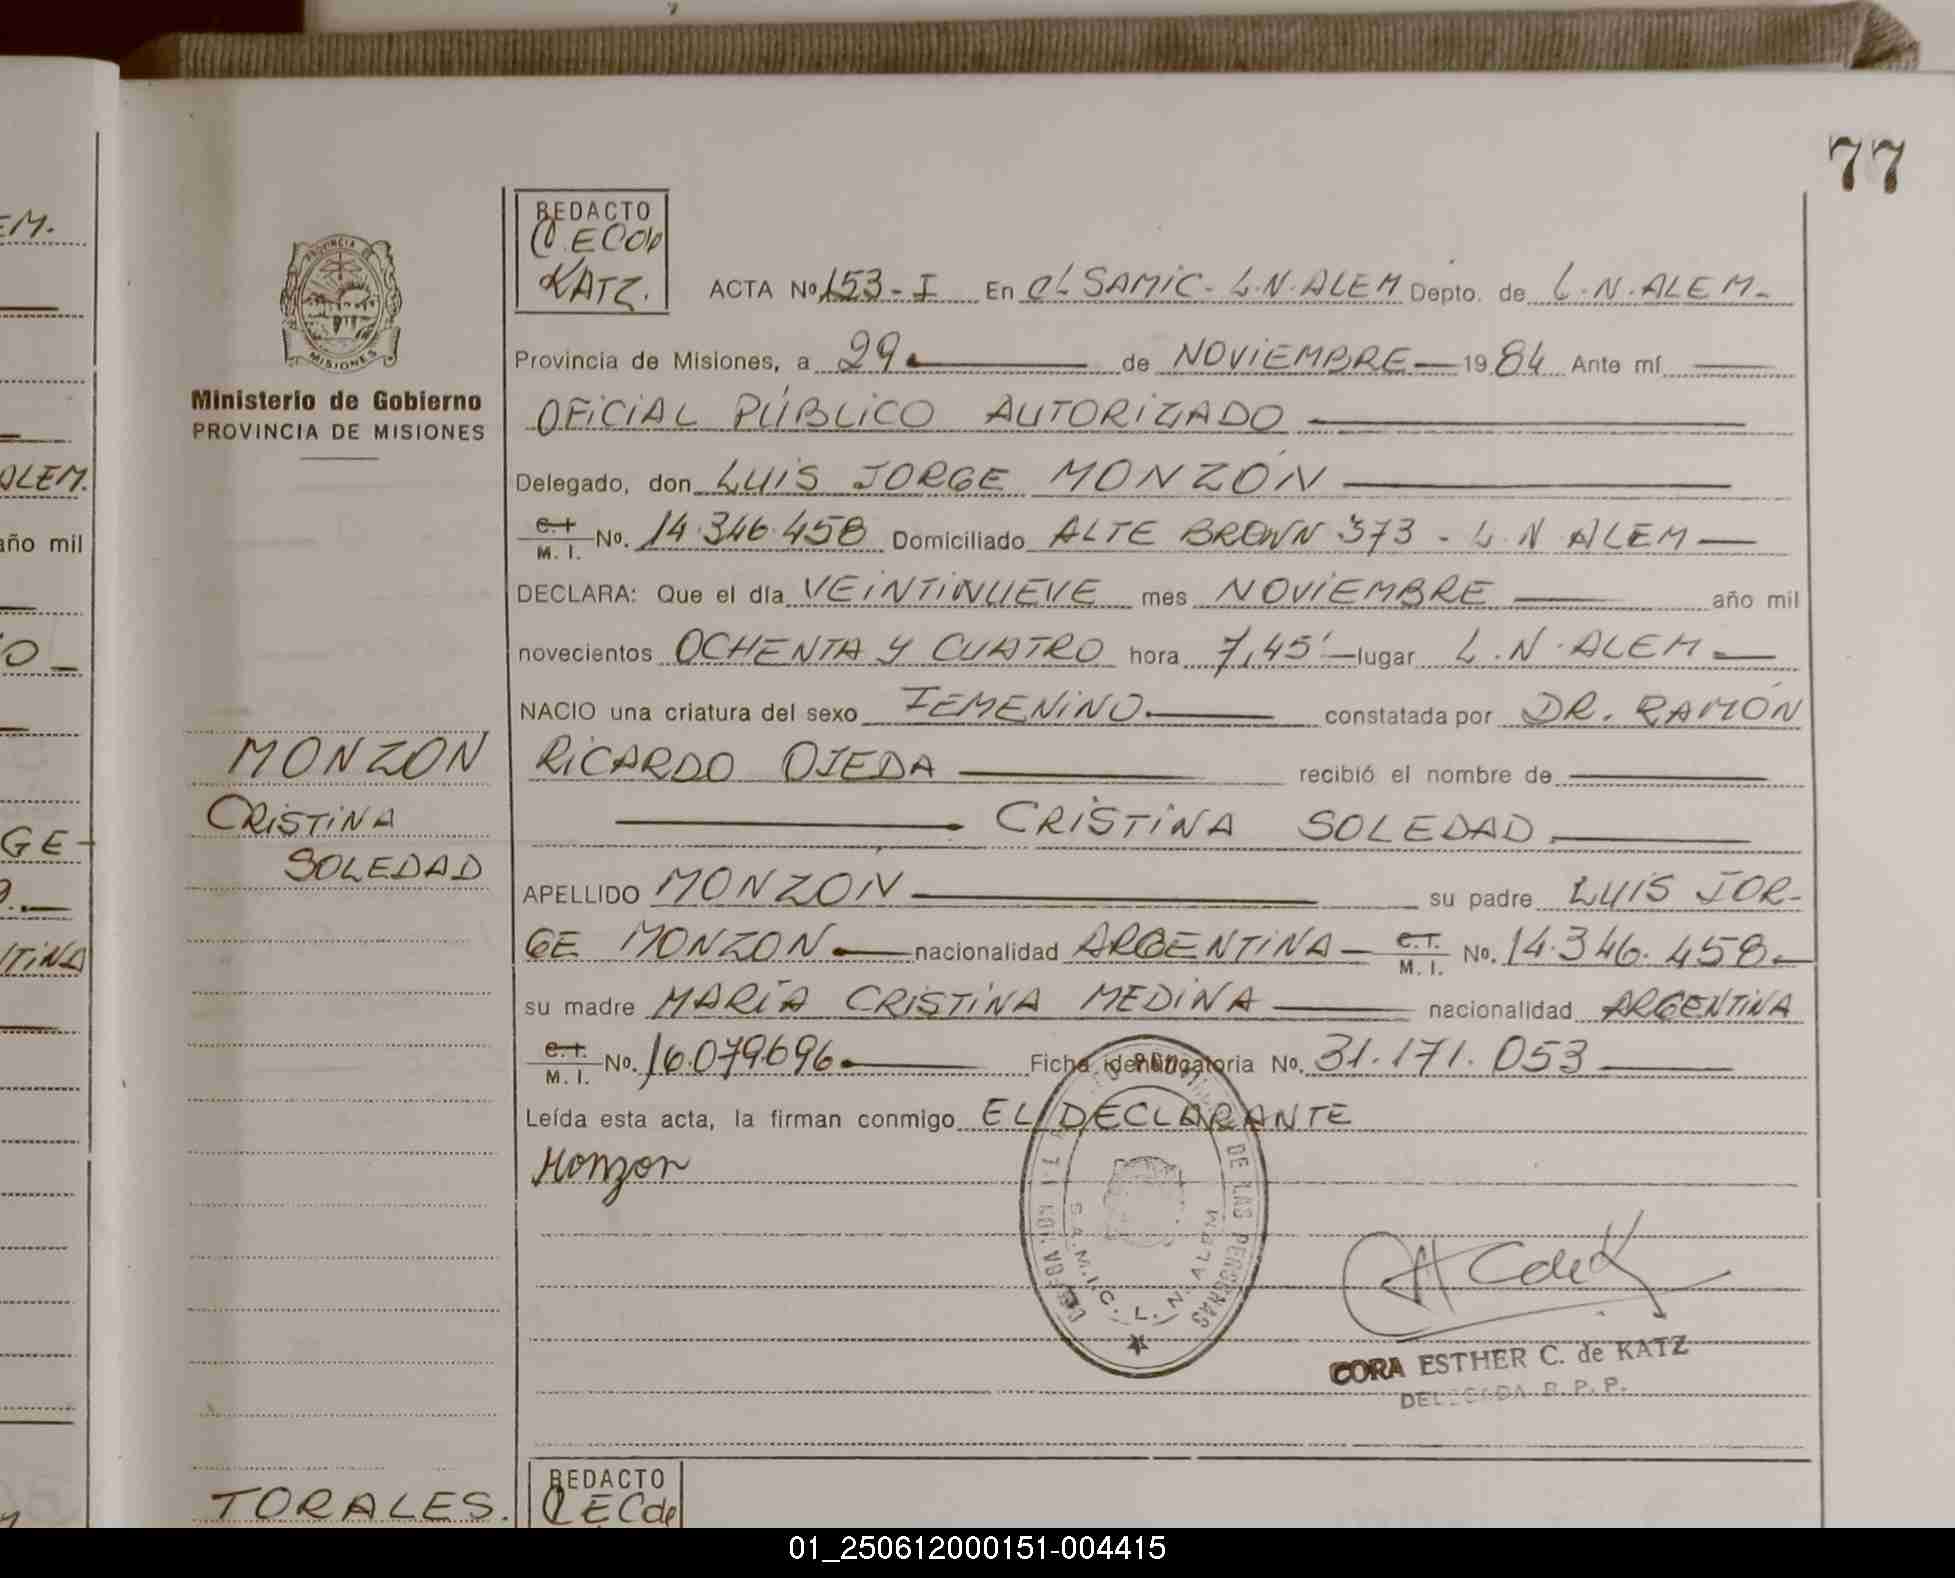 77
EM.
ALEM.
año mil
O
GE-
TINA
PROVINCIA DE
MISIONES
Ministerio de Gobierno
PROVINCIA DE MISIONES
MONZON
CRISTINA
SOLEDAD
TORALES.
REDACTO
C.ECde
KATZ.
ACTA No 153-I En el SAMIC - L.N.ALEM Depto. de L.N.ALEM-
Provincia de Misiones, a 29 de NOVIEMBRE 1984 Ante mí
OFICIAL PÚBLICO AUTORIZADO
Delegado, don LUIS JORGE MONZÓN
C.I. M. I. No. 14.346.458 Domiciliado ALTE BROWN 373 - L.N ALEM
DECLARA: Que el día VEINTINUEVE mes NOVIEMBRE año mil
novecientos OCHENTA Y CUATRO hora 7,45' lugar L.N.ALEM
NACIO una criatura del sexo FEMENINO constatada por DR. RAMÓN
RICARDO OJEDA recibió el nombre de
CRISTINA SOLEDAD
APELLIDO MONZON su padre LUIS JOR-
GE MONZON nacionalidad ARGENTINA C.I. M. I. No. 14.346.458
su madre MARÍA CRISTINA MEDINA nacionalidad ARGENTINA
C.I. M. I. No. 16.079696 Ficha identificatoria No. 31.171.053
Leída esta acta, la firman conmigo EL DECLARANTE
Monzon
DE LAS PERSONAS
S.A.M.I.C. L. N. ALEM
CORA ESTHER C. de KATZ
DELEGADA R.P.P.
REDACTO
C.ECde
01_250612000151-004415